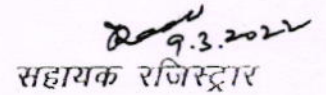 9.3.2022
सहायक रजिस्ट्रार